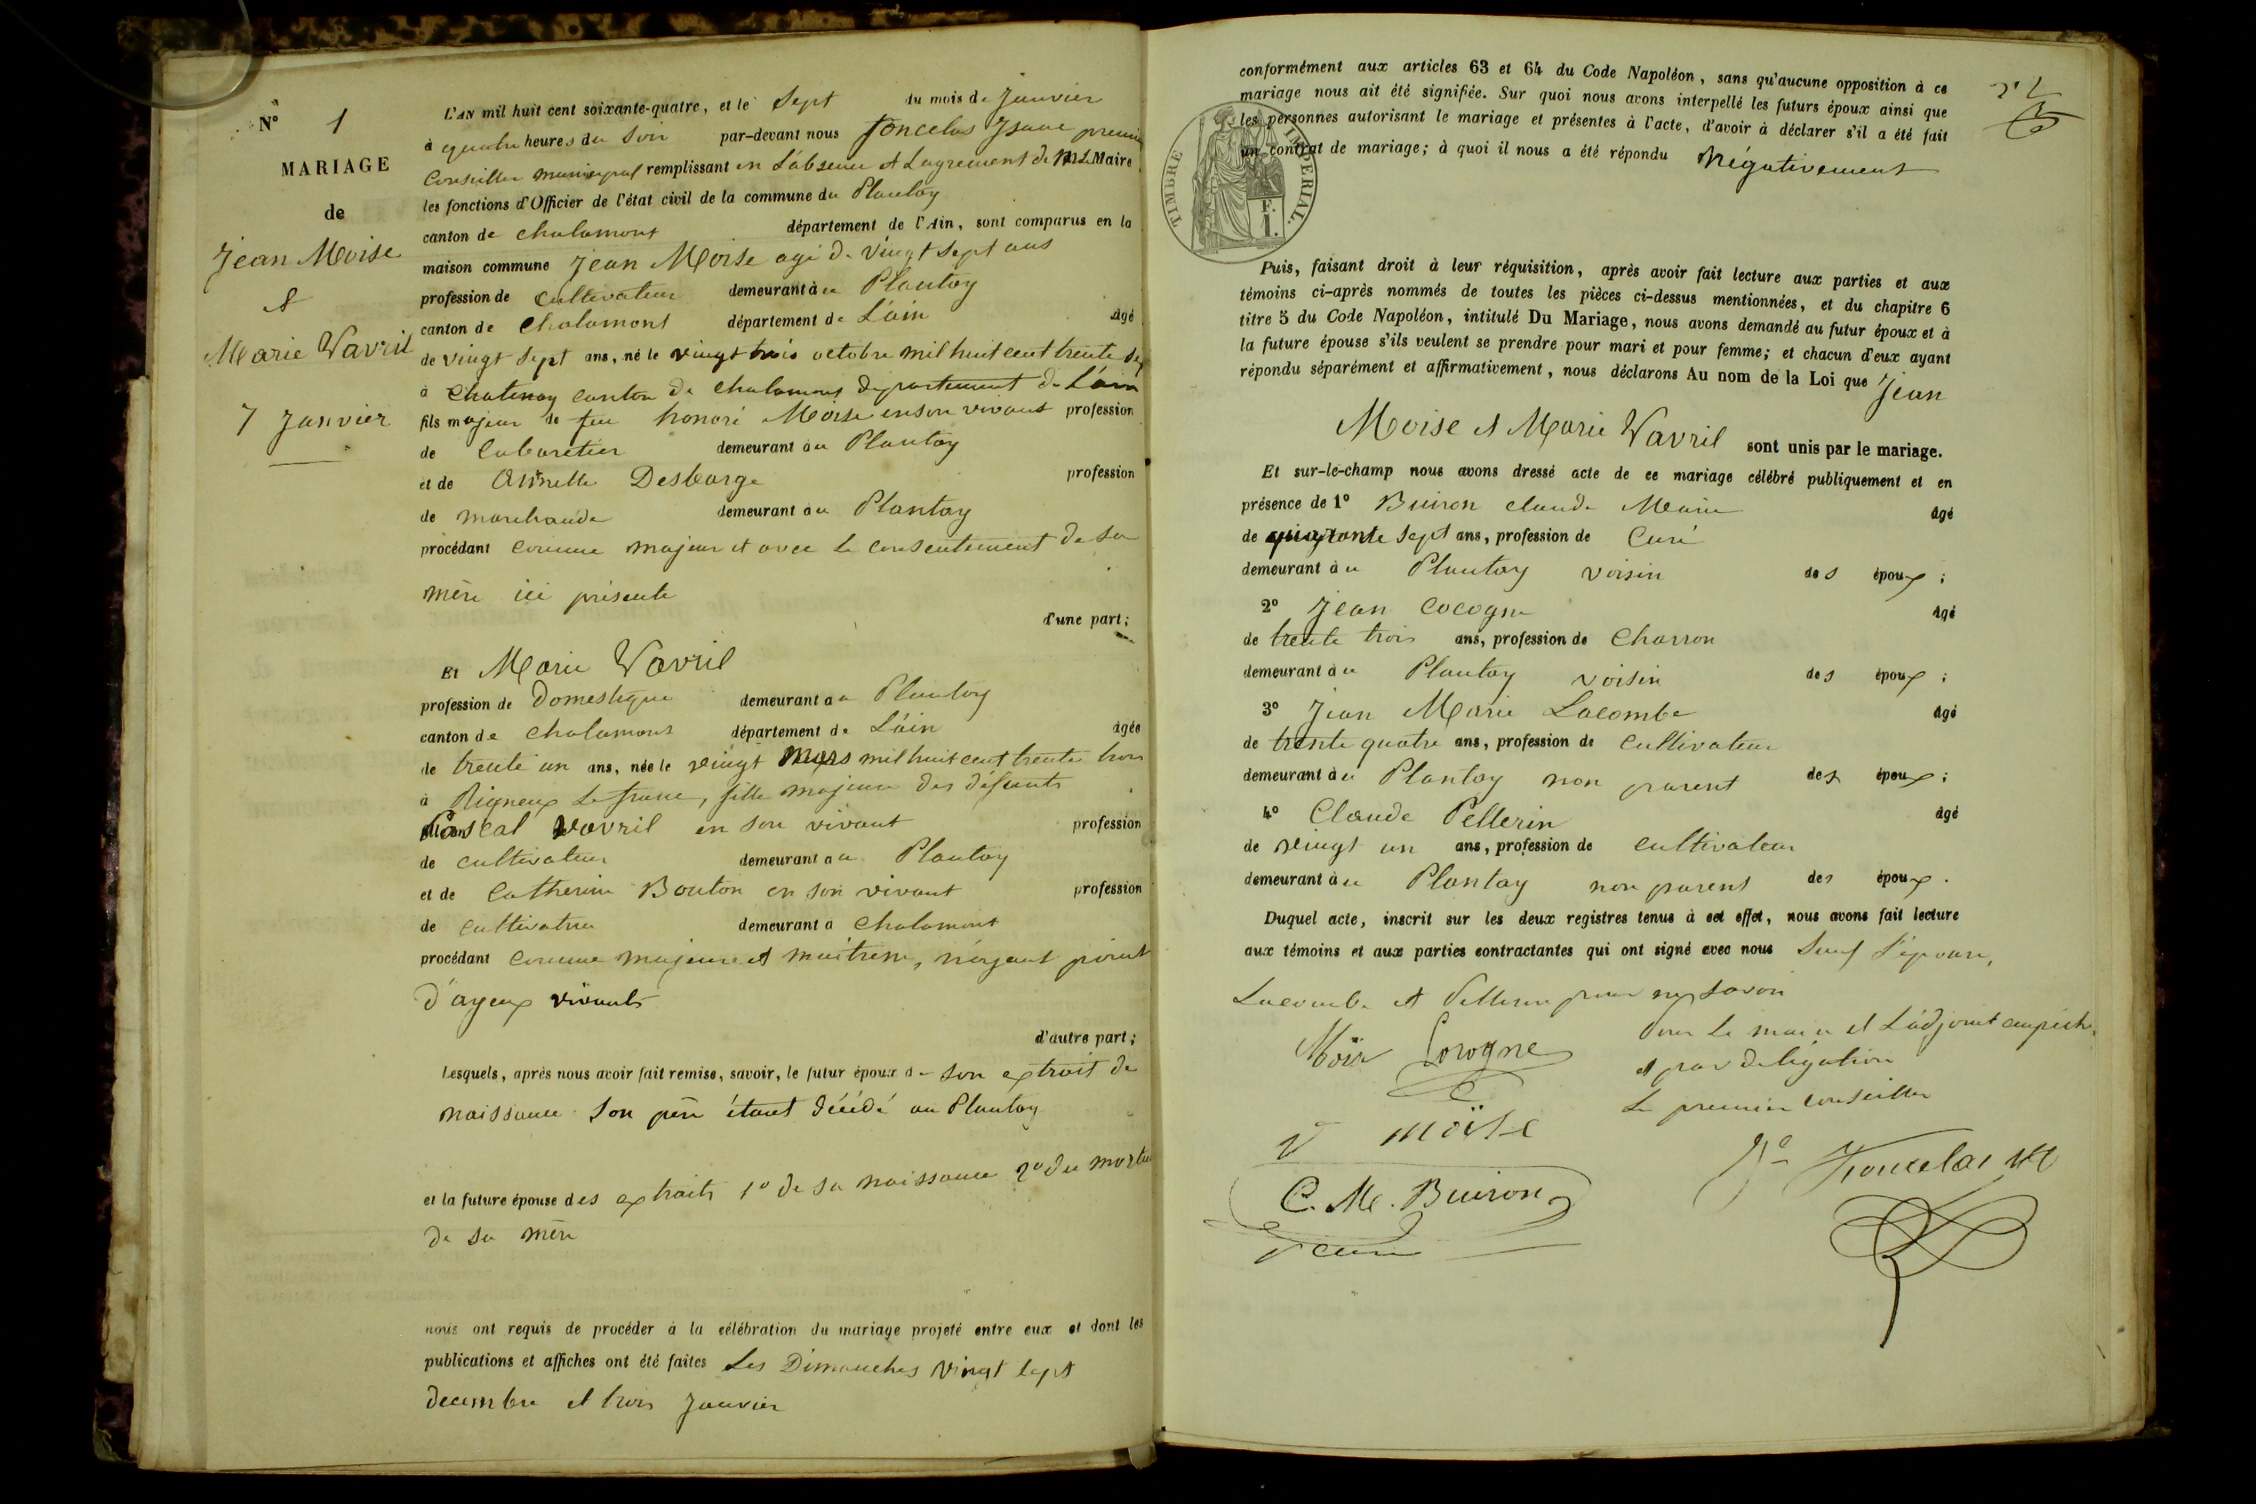 N° 1
MARIAGE
de
Jean Moise
&
Marie Vavril
7 Janvier
L'AN mil huit cent soixante-quatre, et le Sept du mois de Janvier
à quatre heures du Soir par-devant nous Joncelas Isaac premier
Conseiller municipal remplissant en L'absence et Lagrement de M. L Maire
les fonctions d'Officier de l'état civil de la commune du Plantay
canton de chalamont département de l'Ain, sont comparus en la
maison commune Jean Moise agé de vingt sept ans
profession de cultivateur demeurant à u Plantay
canton de chalamont département de L'ain âgé
de vingt sept ans, né le vingt trois octobre mil huit cent trente six
à Chatenay canton de chalamont département de L'ain
fils majeur de feu honoré Moise en son vivant profession
de Cabaretier demeurant au Plantay
et de Annette Desbarge profession
de marchande demeurant au Plantay
procédant comme majeur et avec le consentement de sa
mère ici présente
d'une part;
Et Marie Vavril
profession de Domestique demeurant au Plantay
canton de chalamont département de L'ain âgée
de trente un ans, née le vingt Mars mil huit cent trente trois
à Rigneux Le franc, fille majeure des défunts
Pascal Vavril en son vivant profession
de cultivateur demeurant au Plantay
et de Catherine Bouton en son vivant profession
de cultivatrice demeurant à chalamont
procédant comme majeure et maitresse, n'ayant point
d'ayeux vivants
d'autre part;
Lesquels, après nous avoir fait remise, savoir, le futur époux de son extrait de
naissance son père étant décédé au Plantay
et la future épouse des extraits 1° de sa naissance 2° du mortu
de sa mère
nous ont requis de procéder à la célébration du mariage projeté entre eux et dont les
publications et affiches ont été faites Les Dimanches vingt sept
decembre et trois Janvier
conformément aux articles 63 et 64 du Code Napoléon, sans qu'aucune opposition à ce
mariage nous ait été signifiée. Sur quoi nous avons interpellé les futurs époux ainsi que
les personnes autorisant le mariage et présentes à l'acte, d'avoir à déclarer s'il a été fait
un contrat de mariage; à quoi il nous a été répondu Négativement
TIMBRE IMPÉRIAL.
F.
1.
Puis, faisant droit à leur réquisition, après avoir fait lecture aux parties et aux
témoins ci-après nommés de toutes les pièces ci-dessus mentionnées, et du chapitre 6
titre 5 du Code Napoléon, intitulé Du Mariage, nous avons demandé au futur époux et à
la future épouse s'ils veulent se prendre pour mari et pour femme; et chacun d'eux ayant
répondu séparément et affirmativement, nous déclarons Au nom de la Loi que Jean
Moise et Marie Vavril sont unis par le mariage.
Et sur-le-champ nous avons dressé acte de ce mariage célébré publiquement et en
présence de 1° Buiron claude Marie âgé
de quarante sept ans, profession de Curé
demeurant à u Plantay voisin des époux;
2° Jean Cocogne âgé
de trente trois ans, profession de Charron
demeurant à u Plantay voisin des époux;
3° Jean Marie Lacombe âgé
de trente quatre ans, profession de cultivateur
demeurant à u Plantay non parent des époux;
4° Claude Pellerin âgé
de vingt un ans, profession de cultivateur
demeurant à u Plantay non parent des époux.
Duquel acte, inscrit sur les deux registres tenus à cet effet, nous avons fait lecture
aux témoins et aux parties contractantes qui ont signé avec nous Sauf l'épouse,
Lacombe et Pellerin pour ne savoir
Moïse Cocogne
Pour Le maire et L'adjoint empéché
et par délégation
Le premier Conseiller
V moïse
C. M. Buiron
curé
Joncelas